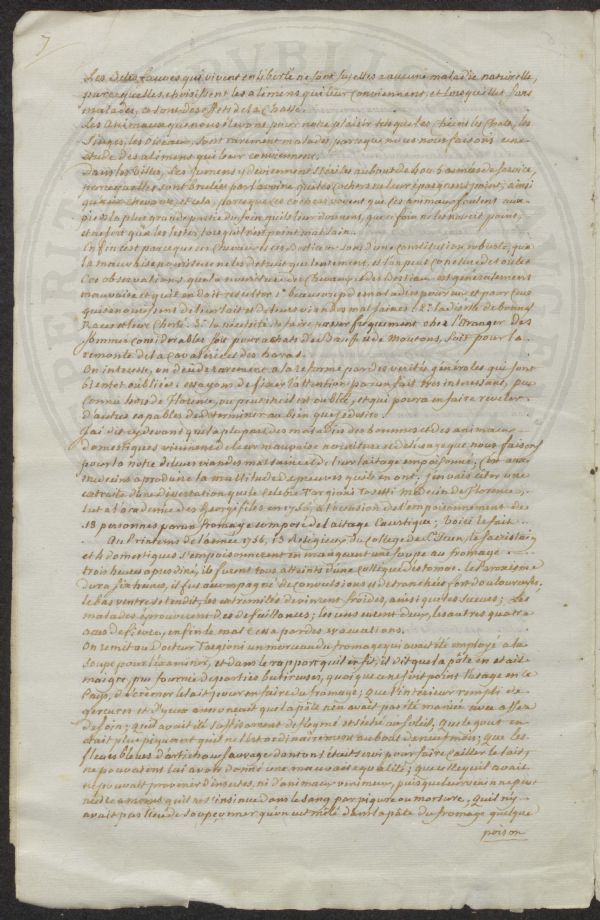 7
Les Betes fauves qui vivent en liberté ne sont sujettes a aucune maladie naturelle,
parcequelles choisissent les alimens qui leur conviennent, et lorsquelles sont
malades, ce sont des effets de la Chasse.
Les Animaux que nous élevons pour notre plaisir tels que les Chiens les Chats, les
Singes, les Oiseaux, sont rarement malades, parceque nous nous faisons une
étude des alimens qui leur conviennent.
Dans les Villes, les Jumens y deviennent stériles au bout de 4 ou 5 années de service,
parcequelles sont brulées par lavoine que les Cochers ne leur épargnent point, ainsi
quaux chevaux, et cela, parceque ces cochers voient que ces animaux foulent aux
pieds la plus grande partie du foin quils leur donnent, que ce foin ne les nourit point,
et ne fait que les lester, lorsquil n'est point mal sain.
Enfin c'est parceque ces Chevaux, et ces Bestiaux sont d'une constitution robuste, que
la mauvaise nouriture ne les detruit que lentement, et l'on peut conclure de toutes
Ces observations, que la nouriture des Chevaux et des Bestiaux est généralement
mauvaise et quil en doit résulter 1° beaucoup de maladies pour eux et pour ceux
qui se nourissent de leur lait et de leurs viandes mal saines: 2° la disette de bonnes
Races et leur Cherté. 3° la nécessité de faire passer fréquemment chez l'Etranger des
sommes considérables soit pour achats de Bœufs et de Moutons, soit pour la
remonte de la cavalerie et des haras.
On interesse, on décide rarement a la réforme par des verités générales qui sont
bientot oubliées: essayons de fixer lattention par un fait tres interessant, peu
Connu hors de Florence, ou peut etre il est oublié, et qui pourra en faire reveler
d'autres capables de déterminer au bien que je désire.
Jai dit cy devant que la plupart des maladies des hommes et des animaux
domestiques viennent de leur mauvaise nouriture et de lusage que nous faisons
pour la notre de leurs viandes mal saines et de leur laitage empoisonné, C'est aux
medecins a produire la multitude de preuves quils en ont: j'en vais citer une
extraite d'une dissertation que le Celebre Targioni Tozetti Medecin de Florence,
lut a l'academie des Georgifiles en 1756, a l'occasion de l'empoisonnement de
18 personnes par un fromage composé de laitage Caustique; Voici le fait.
Au Printems de l'année 1756, 13 Religieux du College de St Jean, le sacristain
et 4 domestiques s'empoisonnerent en mangeant une soupe au fromage.
trois heures apres diné, ils furent tous atteints d'une collique d'estomac. le Paroxisme
dura six heures, il fut accompagné de convulsions et de tranchées fort douloureuses,
le bas ventre se tendit, les extremités devinrent froides, ainsi que les sueurs; les
malades éprouverent des defaillances; les uns eurent deux, les autres quatre
acces de fievre, enfin le mal cessa par des evacuations.
On remit au Docteur Targioni un morceau du fromage qui avait été employé a la
soupe pour l'examiner, et dans le rapport quil en fit, il dit que la pâte en était
maigre, peu fournie de parties butireuses, quoique ce ne soit point l'usage en ce
Pays, d'ecremer le lait pour en faire du fromage; que l'intérieur rempli de
gerçures et d'yeux annoncait que la pâte n'en avait pas été maniée avec assez
de soin; quil avait été suffisament desflegmé et séché au soleil, que le gout en
était plus piquant quil ne l'est ordinairement au bout de neuf mois; que les
fleurs bleues d'artichau sauvage dont on s'était servi pour faire cailler le lait,
ne pouvaient lui avoir donné une mauvaise qualité; que celle quil avait
ne pouvait provenir d'insectes, ni d'animaux venimeux, puisque leur venin ne peut
nuire a moins quil ne s'insinue dans le sang par piqure ou morsure, quil n'y
avait pas lieu de soupçonner qu'on eut mêlé dans la pâte du fromage quelque
poison